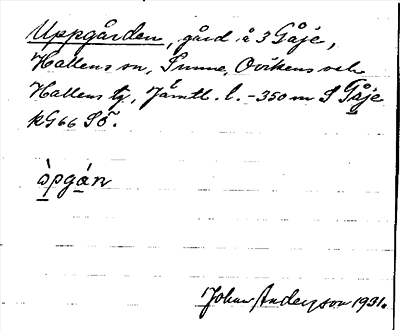 Uppgården, gård å 3 Gåje,
Hallens sn, Sunne, Ovikens och
Hallens tg, Jämtl. l. -350 m S Gåje
kG66 SÖ.
òpgán
Johan Anderson 1931.